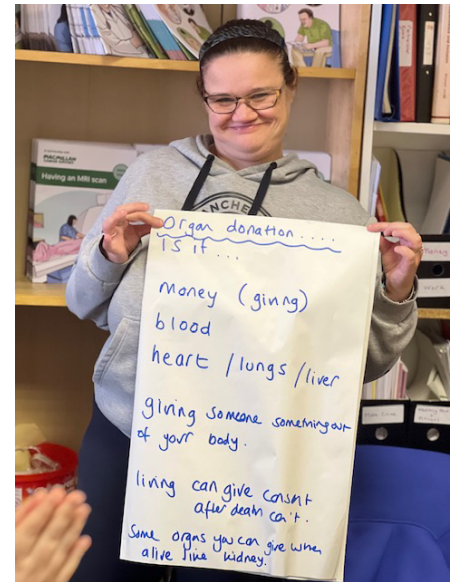 MACMILLAN
Having an MRI scan
MACMILLAN
NCHE
Organ donation ....
is if ...
money (givng)
blood
heart / lungs / liver
giving someone something out
of your body.
living can give consnt
after death can't.
Some organs you can give when
alive like kidney.
work